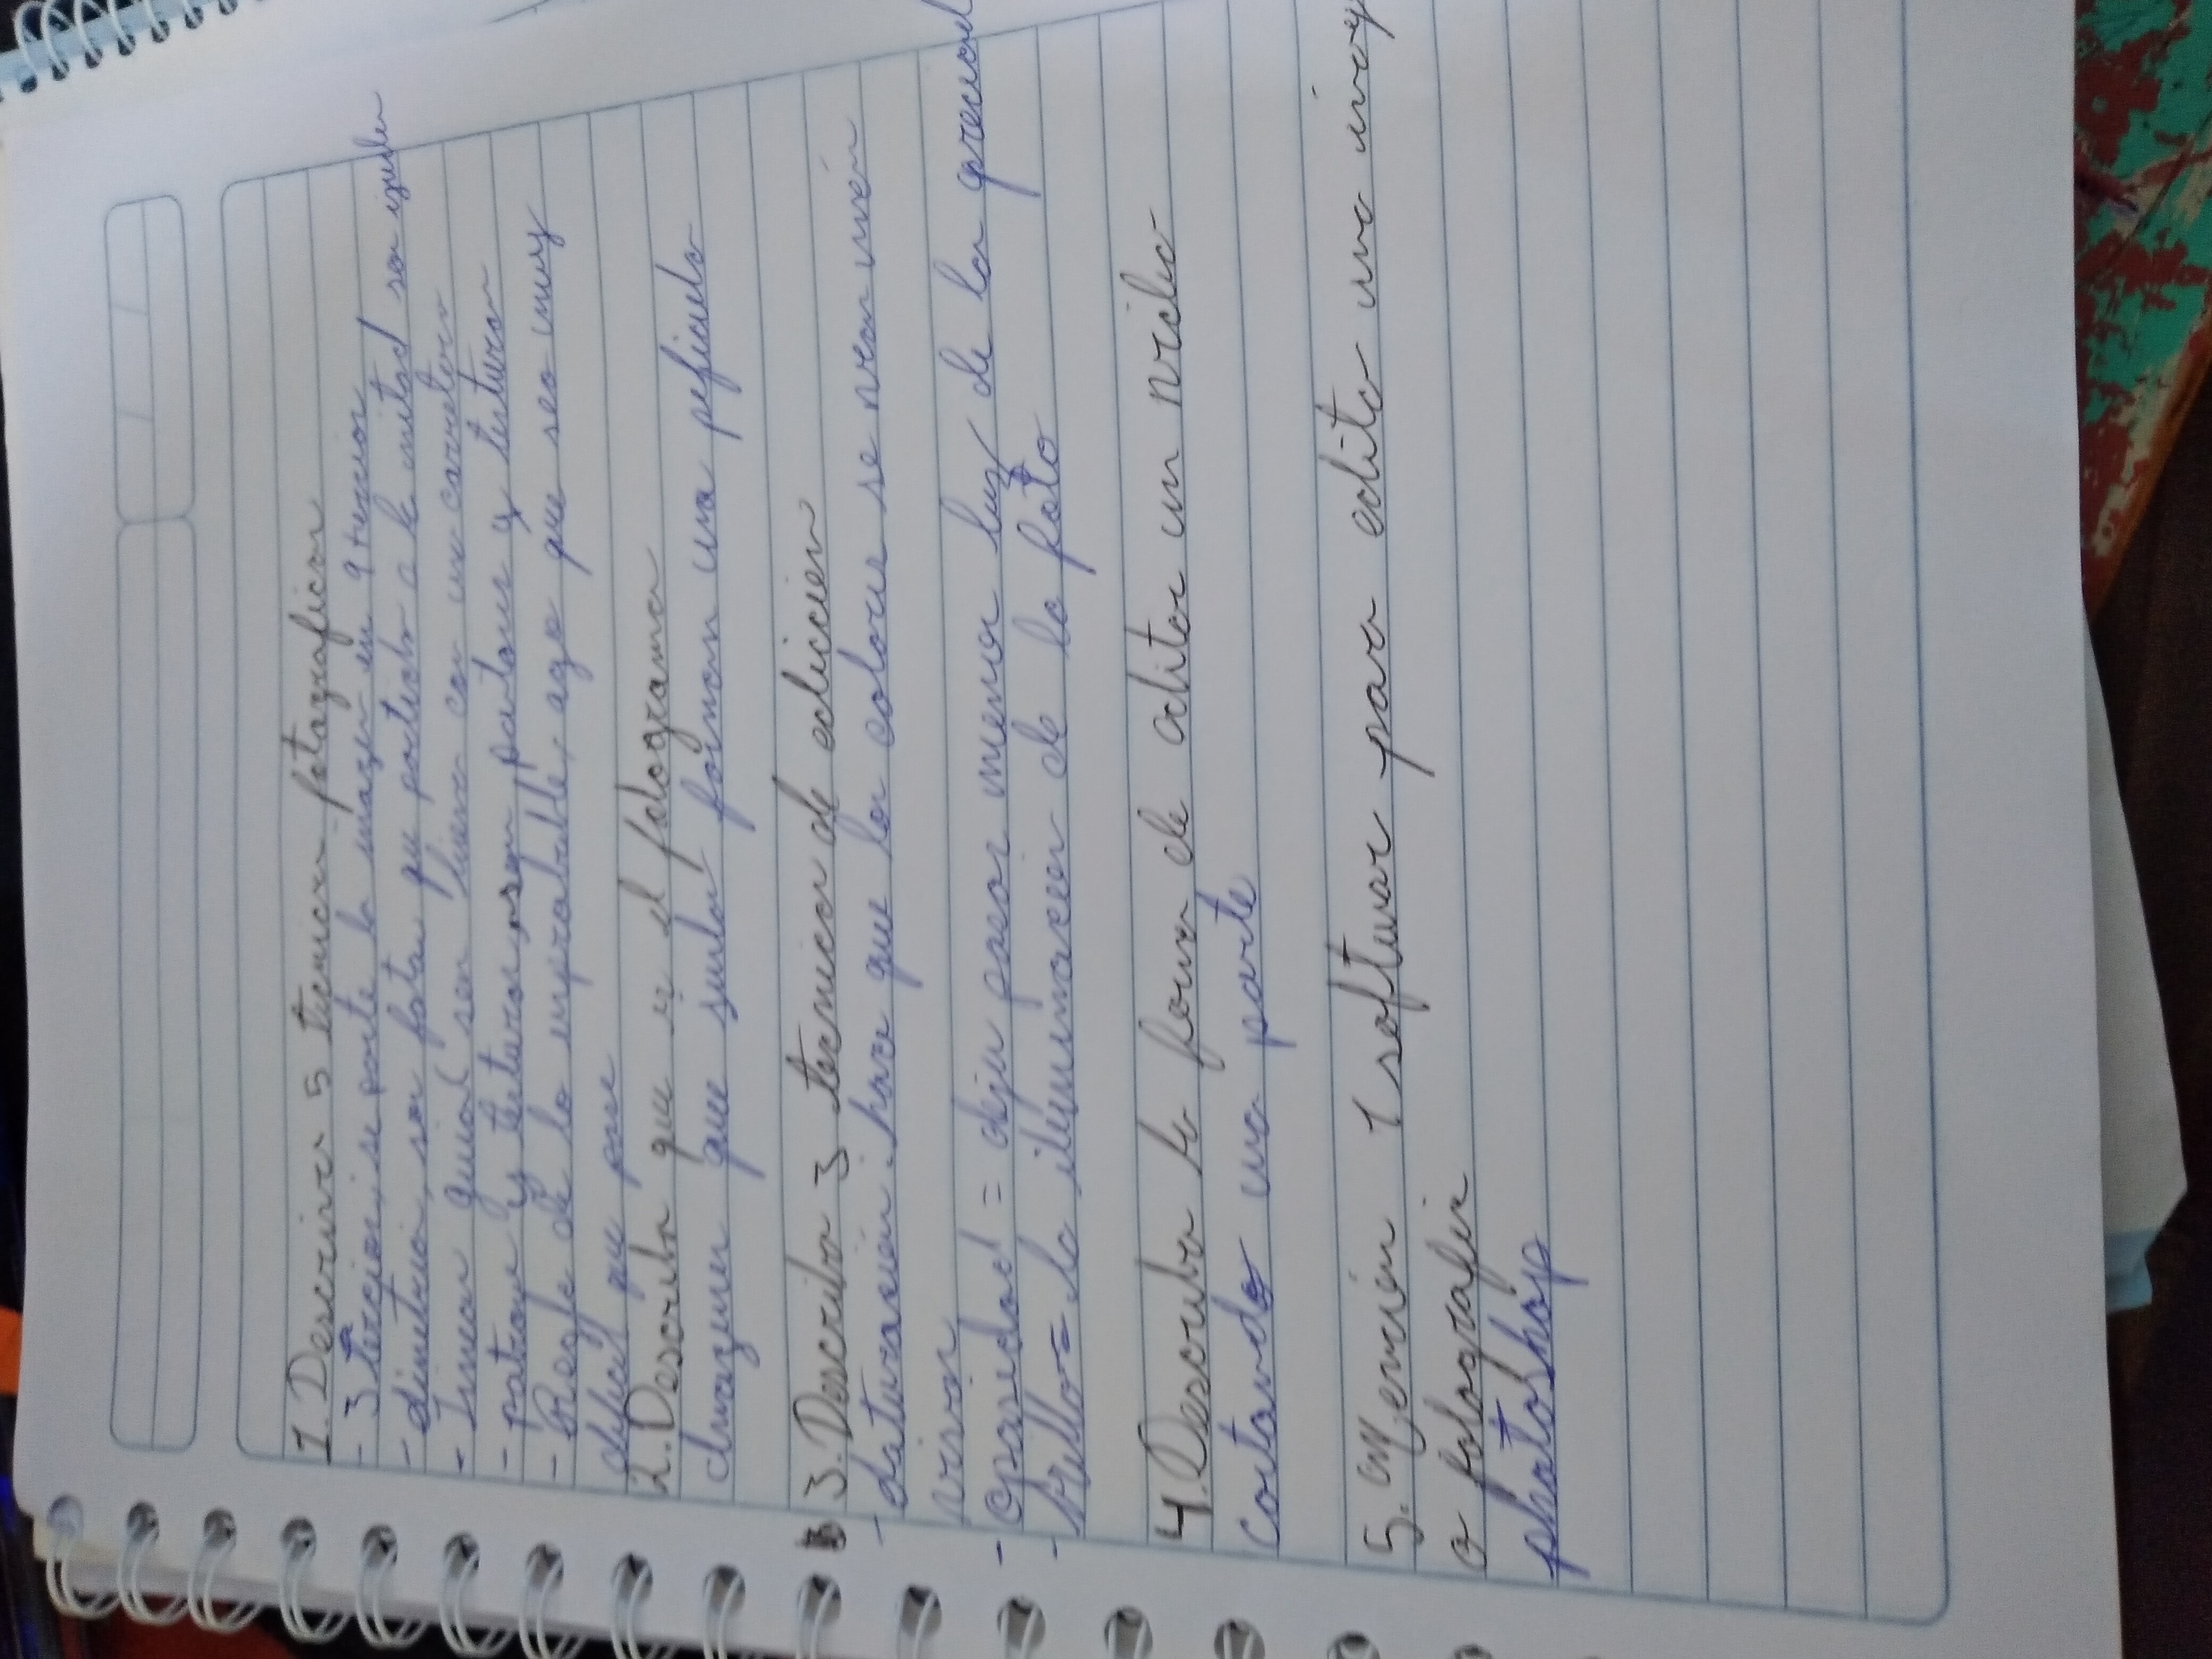 1. Describa 5 tecnicas fotograficas
- 3 tercios, se parte la imagen en 9 tercios
- simetria, son fotos qu partirla a la mitad son iguales
- lineas guias sen linea con un carretera
- patrone y texturas, patrones y texturas
- Regla de lo improbable, ago que sea muy
dificil que pase
2. Describa que es el fotograma
imagenes que juntas forman una pelicula
3. Describa 3 tecnicas de edliccion
- saturasión. hace que los colores se vean más
vivos
- Oposidad = deja pasar menos luz de los
- brillo = la iluminacion de la foto
4. Describa la forma de aditar un video
cortando una parte
5. Mencion 1 softwar para edita una
o fotografia
photoshop